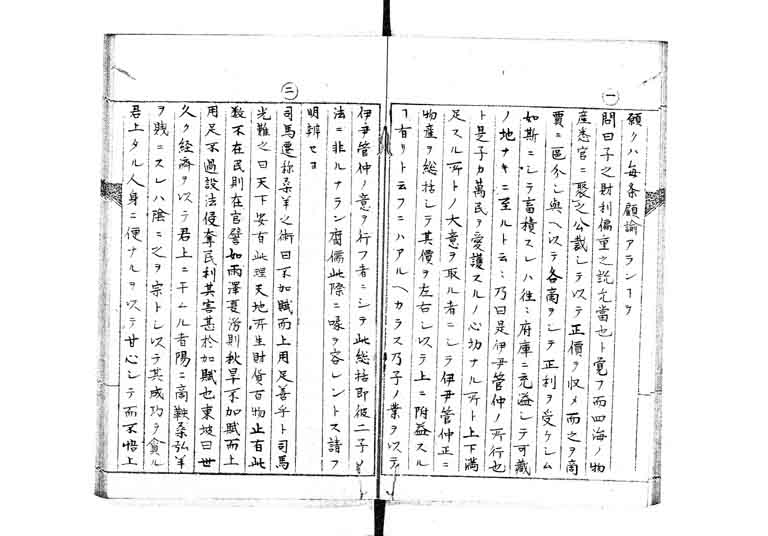 一
願クハ毎条顧諭アランヿヲ
問曰子之財利偏重之説尤當也ト覚フ而四海ノ物
産悉官ニ聚之公裁シテ以テ正價ヲ收メ而之ヲ商
賈ニ區分シ與ヘ以テ各商ヲシテ正利ヲ受ケシム
如斯ニシテ畜積スレハ往〻府庫ニ充溢シテ可蔵
ノ地ナキニ至ルト云〻乃曰是伊尹管仲ノ所行也
ト是子カ萬民ヲ愛護スルノ心切ナル所ト上下満
足スル所トノ大意ヲ取ル者ニシテ伊尹管仲正ニ
物産ヲ総括シテ其價ヲ左右シ以テ上ニ附益スル
ヿ有リト云フニハアルヘカラス乃子ノ業ヲ以テ
伊尹管仲ノ意ヲ行フ者ニシテ此総括即彼二子ノ
法ニ非ルナラン腐儒此際ニ喙ヲ容レントス請フ
明辨セヨ
二
司馬遷称桑羊之術曰不加賦而上用足善乎ト司馬
光難之曰天下安有此理天地所生財貨百物止有此
数不在民則在官譬如雨澤夏澇則秋旱不加賦而上
用足不過設法侵奪民利其害甚於加賦也東坡曰世
久ク経済ヲ以テ君上ニ干ムル者陽ニ商鞅桑弘羊
ヲ賤ニスレハ陰ニ之ヲ宗トシ以テ其成功ヲ貪ル
君上タル人身ニ便ナルヲ以テ甘心シテ而不悟上